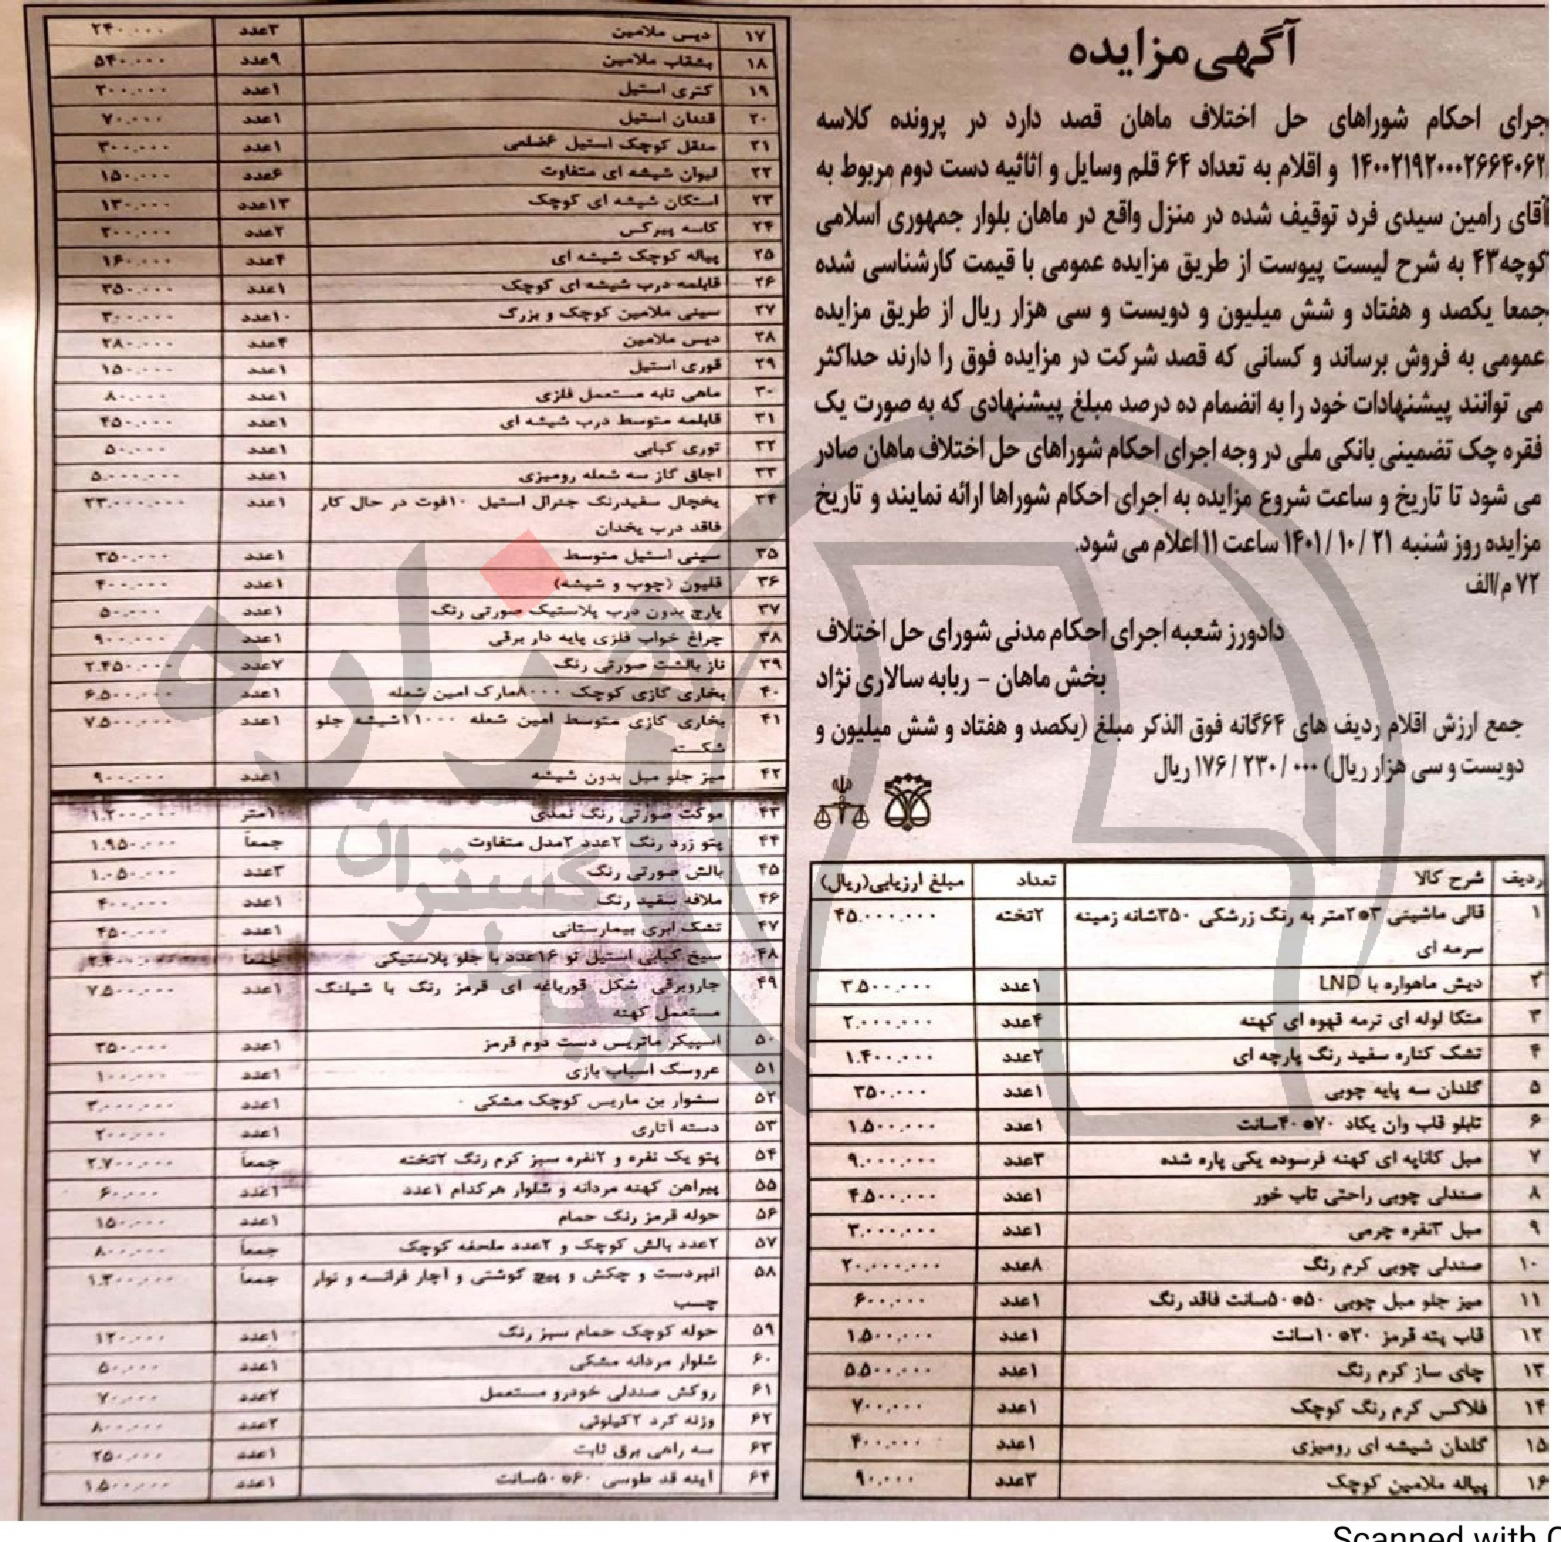 آگهی مزایده
جرای احکام شوراهای حل اختلاف ماهان قصد دارد در پرونده کلاسه
۱۴۰۰۲۱۹۲۰۰۰۲۶۶۴۰۶۲ و اقلام به تعداد ۶۴ قلم وسایل و اثاثیه دست دوم مربوط به
آقای رامین سیدی فرد توقیف شده در منزل واقع در ماهان بلوار جمهوری اسلامی
کوچه۴۳ به شرح لیست پیوست از طریق مزایده عمومی با قیمت کارشناسی شده
جمعا یکصد و هفتاد و شش میلیون و دویست و سی هزار ریال از طریق مزایده
عمومی به فروش برساند و کسانی که قصد شرکت در مزایده فوق را دارند حداکثر
می توانند پیشنهادات خود را به انضمام ده درصد مبلغ پیشنهادی که به صورت یک
فقره چک تضمینی بانکی ملی در وجه اجرای احکام شوراهای حل اختلاف ماهان صادر
می شود تا تاریخ و ساعت شروع مزایده به اجرای احکام شوراها ارائه نمایند و تاریخ
مزایده روز شنبه ۲۱ / ۱۰ / ۱۴۰۱ ساعت ۱۱ اعلام می شود.
۷۲ م/الف
دادورز شعبه اجرای احکام مدنی شورای حل اختلاف
بخش ماهان - ربابه سالاری نژاد
جمع ارزش اقلام ردیف های ۶۴گانه فوق الذکر مبلغ (یکصد و هفتاد و شش میلیون و
دویست و سی هزار ریال) ۱۷۶/۲۳۰/۰۰۰ ریال
ردیف شرح کالا تعداد مبلغ ارزیابی(ریال)
۱ قالی ماشینی ۳*۲متر به رنگ زرشکی ۳۵۰شانه زمینه ۲تخته ۴۵.۰۰۰.۰۰۰
سرمه ای
۲ دیش ماهواره با LND ۱عدد ۳.۵۰۰.۰۰۰
۳ متکا لوله ای ترمه قهوه ای کهنه ۴عدد ۲.۰۰۰.۰۰۰
۴ تشک کناره سفید رنگ پارچه ای ۲عدد ۱.۴۰۰.۰۰۰
۵ گلدان سه پایه چوبی ۱عدد ۳۵۰.۰۰۰
۶ تابلو قاب وان یکاد ۷۰*۴۰سانت ۱عدد ۱.۵۰۰.۰۰۰
۷ مبل کاناپه ای کهنه فرسوده یکی پاره شده ۳عدد ۹.۰۰۰.۰۰۰
۸ صندلی چوبی راحتی تاب خور ۱عدد ۴.۵۰۰.۰۰۰
۹ مبل ۳نفره چرمی ۱عدد ۳.۰۰۰.۰۰۰
۱۰ صندلی چوبی کرم رنگ ۸عدد ۲۰.۰۰۰.۰۰۰
۱۱ میز جلو مبل چوبی ۵۰*۵۰سانت فاقد رنگ ۱عدد ۶۰۰.۰۰۰
۱۲ قاب پته قرمز ۳۰*۱۰سانت ۱عدد ۱.۵۰۰.۰۰۰
۱۳ چای ساز کرم رنگ ۱عدد ۵.۵۰۰.۰۰۰
۱۴ فلاکس کرم رنگ کوچک ۱عدد ۷۰۰.۰۰۰
۱۵ گلدان شیشه ای رومیزی ۱عدد ۴۰۰.۰۰۰
۱۶ پیاله ملامین کوچک ۳عدد ۹۰.۰۰۰
۱۷ دیس ملامین ۳عدد ۲۴۰.۰۰۰
۱۸ بشقاب ملامین ۹عدد ۵۴۰.۰۰۰
۱۹ کتری استیل ۱عدد ۲۰۰.۰۰۰
۲۰ قندان استیل ۱عدد ۷۰.۰۰۰
۲۱ منقل کوچک استیل ۶ضلعی ۱عدد ۳۰۰.۰۰۰
۲۲ لیوان شیشه ای متفاوت ۶عدد ۱۵۰.۰۰۰
۲۳ استکان شیشه ای کوچک ۱۳عدد ۱۳۰.۰۰۰
۲۴ کاسه پیرکس ۲عدد ۲۰۰.۰۰۰
۲۵ پیاله کوچک شیشه ای ۴عدد ۱۶۰.۰۰۰
۲۶ قابلمه درب شیشه ای کوچک ۱عدد ۳۵۰.۰۰۰
۲۷ سینی ملامین کوچک و بزرگ ۱۰عدد ۳۰۰.۰۰۰
۲۸ دیس ملامین ۴عدد ۲۸۰.۰۰۰
۲۹ قوری استیل ۱عدد ۱۵۰.۰۰۰
۳۰ ماهی تابه مستعمل فلزی ۱عدد ۸۰.۰۰۰
۳۱ قابلمه متوسط درب شیشه ای ۱عدد ۴۵۰.۰۰۰
۳۲ توری کبابی ۱عدد ۵۰.۰۰۰
۳۳ اجاق گاز سه شعله رومیزی ۱عدد ۵.۰۰۰.۰۰۰
۳۴ یخچال سفیدرنگ جنرال استیل ۱۰فوت در حال کار ۱عدد ۲۳.۰۰۰.۰۰۰
فاقد درب یخدان
۳۵ سینی استیل متوسط ۱عدد ۳۵۰.۰۰۰
۳۶ قلیون (چوب و شیشه) ۱عدد ۴۰۰.۰۰۰
۳۷ پارچ بدون درب پلاستیک صورتی رنگ ۱عدد ۵۰.۰۰۰
۳۸ چراغ خواب فلزی پایه دار برقی ۱عدد ۹۰۰.۰۰۰
۳۹ ناز بالشت صورتی رنگ ۷عدد ۲.۴۵۰.۰۰۰
۴۰ بخاری گازی کوچک ۸۰۰۰مارک امین شعله ۱عدد ۶.۵۰۰.۰۰۰
۴۱ بخاری گازی متوسط امین شعله ۱۱۰۰۰شیشه جلو ۱عدد ۷.۵۰۰.۰۰۰
شکسته
۴۲ میز جلو مبل بدون شیشه ۱عدد ۹۰۰.۰۰۰
۴۳ موکت صورتی رنگ نمدی ۱۰متر ۱.۲۰۰.۰۰۰
۴۴ پتو زرد رنگ ۲عدد ۲مدل متفاوت جمعاً ۱.۹۵۰.۰۰۰
۴۵ بالش صورتی رنگ ۳عدد ۱.۰۵۰.۰۰۰
۴۶ ملافه سفید رنگ ۱عدد ۴۰۰.۰۰۰
۴۷ تشک ابری بیمارستانی ۱عدد ۴۵۰.۰۰۰
۴۸ سیخ کبابی استیل نو ۱۶عدد با جلو پلاستیکی جمعاً ۲.۴۰۰.۰۰۰
۴۹ جاروبرقی شکل قورباغه ای قرمز رنگ با شیلنگ ۱عدد ۷.۵۰۰.۰۰۰
مستعمل کهنه
۵۰ اسپیکر ماتریس دست دوم قرمز ۱عدد ۳۵۰.۰۰۰
۵۱ عروسک اسباب بازی ۱عدد ۱۰۰.۰۰۰
۵۲ سشوار بن ماریس کوچک مشکی ۱عدد ۳.۰۰۰.۰۰۰
۵۳ دسته آتاری ۱عدد ۲۰۰.۰۰۰
۵۴ پتو یک نفره و ۲نفره سبز کرم رنگ ۲تخته جمعاً ۲.۷۰۰.۰۰۰
۵۵ پیراهن کهنه مردانه و شلوار هرکدام ۱عدد ۱عدد ۶۰.۰۰۰
۵۶ حوله قرمز رنگ حمام ۱عدد ۱۵۰.۰۰۰
۵۷ ۲عدد بالش کوچک و ۲عدد ملحفه کوچک جمعاً ۸۰۰.۰۰۰
۵۸ انبردست و چکش و پیچ گوشتی و آچار فرانسه و نوار جمعاً ۱.۳۰۰.۰۰۰
چسب
۵۹ حوله کوچک حمام سبز رنگ ۱عدد ۱۲۰.۰۰۰
۶۰ شلوار مردانه مشکی ۱عدد ۵۰.۰۰۰
۶۱ روکش صندلی خودرو مستعمل ۲عدد ۷۰.۰۰۰
۶۲ وزنه گرد ۲کیلوئی ۲عدد ۸۰۰.۰۰۰
۶۳ سه راهی برق ثابت ۱عدد ۲۵۰.۰۰۰
۶۴ آینه قد طوسی ۶۰*۵۰سانت ۱عدد ۱.۵۰۰.۰۰۰
هزاره
گستران
ارتباط
Scanned with C